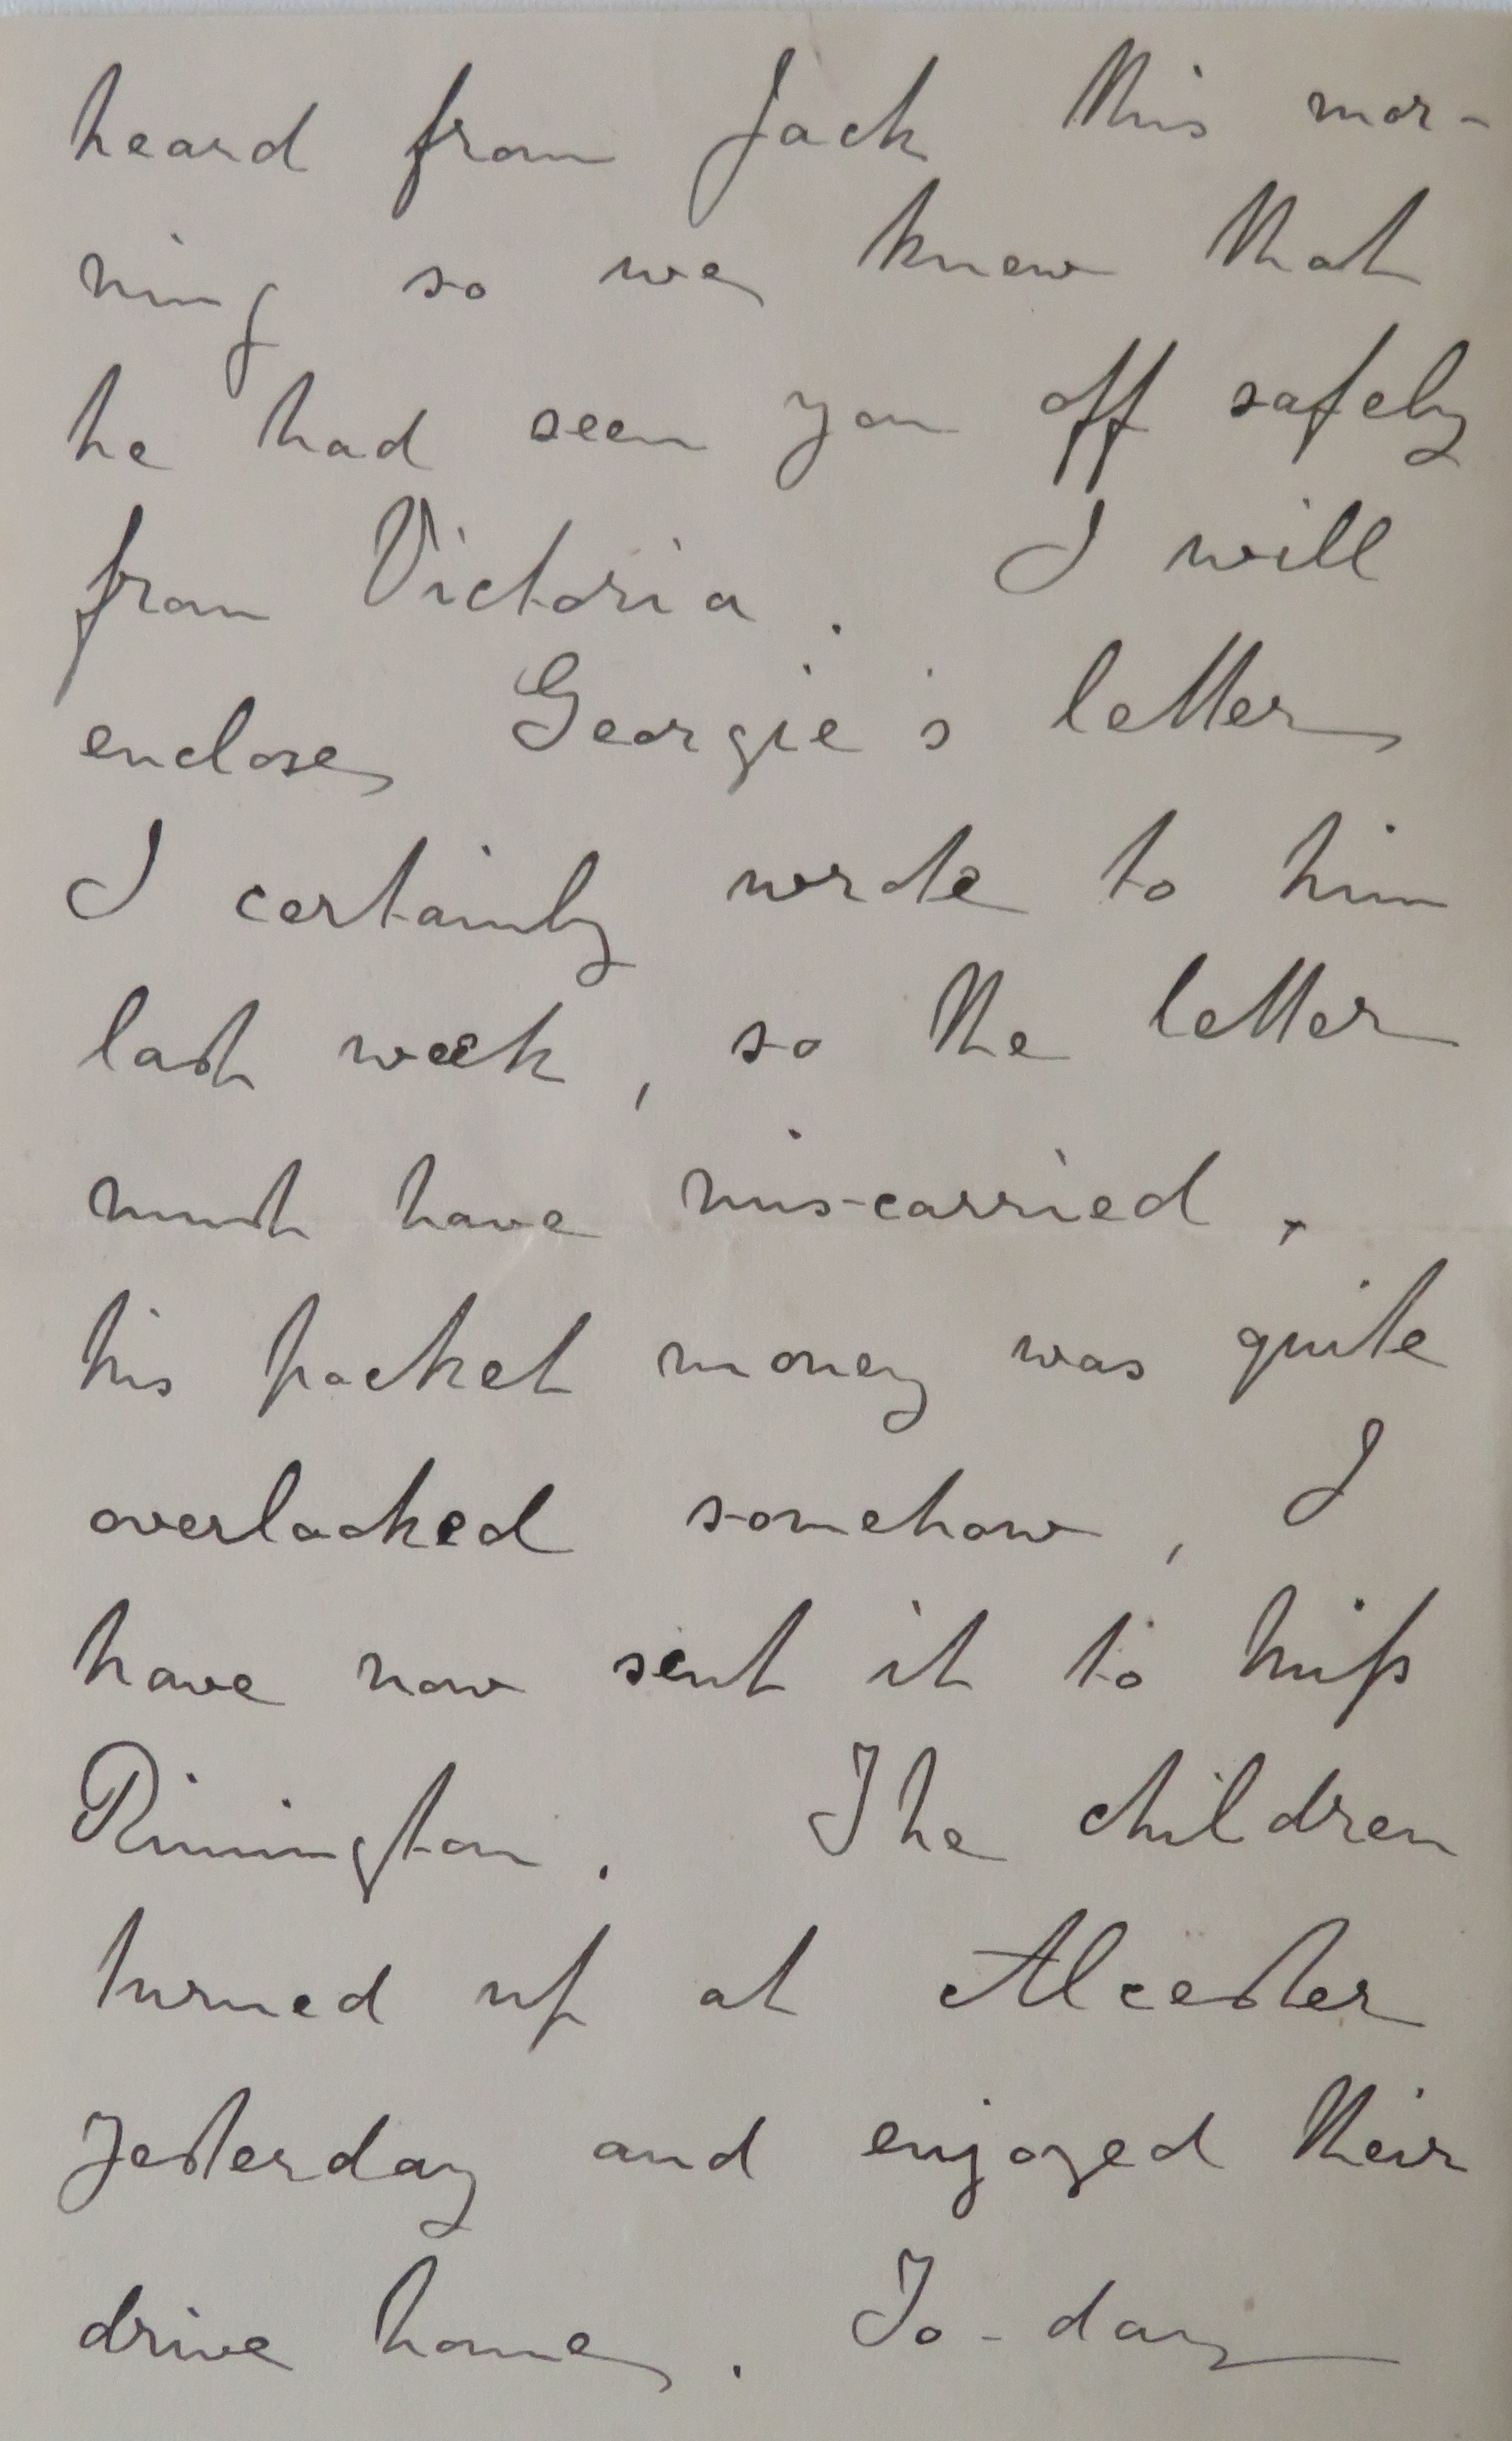 heard from Jack this mor-
ning so we knew that
he had seen you off safely
from Victoria. I will
enclose Georgie's letter
I certainly wrote to him
last week, so the letter
must have mis-carried,
his pocket money was quite
overlooked somehow, I
have now sent it to Miss
Rimington. The children
turned up at Alcester
yesterday and enjoyed their
drive home. To-day